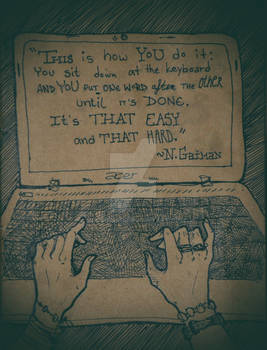 "THIS is how YOU do it:
You sit down at the keyboard
AND YOU put one word after the OTHER
until it's DONE.
It's THAT EASY
and THAT HARD."
~N. Gaiman
acer